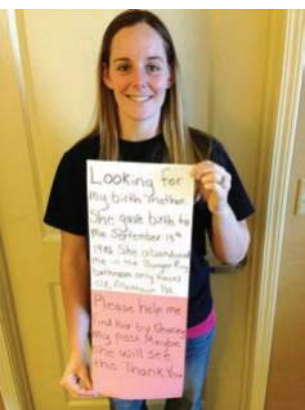 Looking for
my birth mother.
She gave birth to
me September 15th
1986 She abandoned
me in the Burger King
bathroom only hours
old, Allentown PA.
Please help me
find her by Sharing
my post. Maybe
she will see
this. Thank You